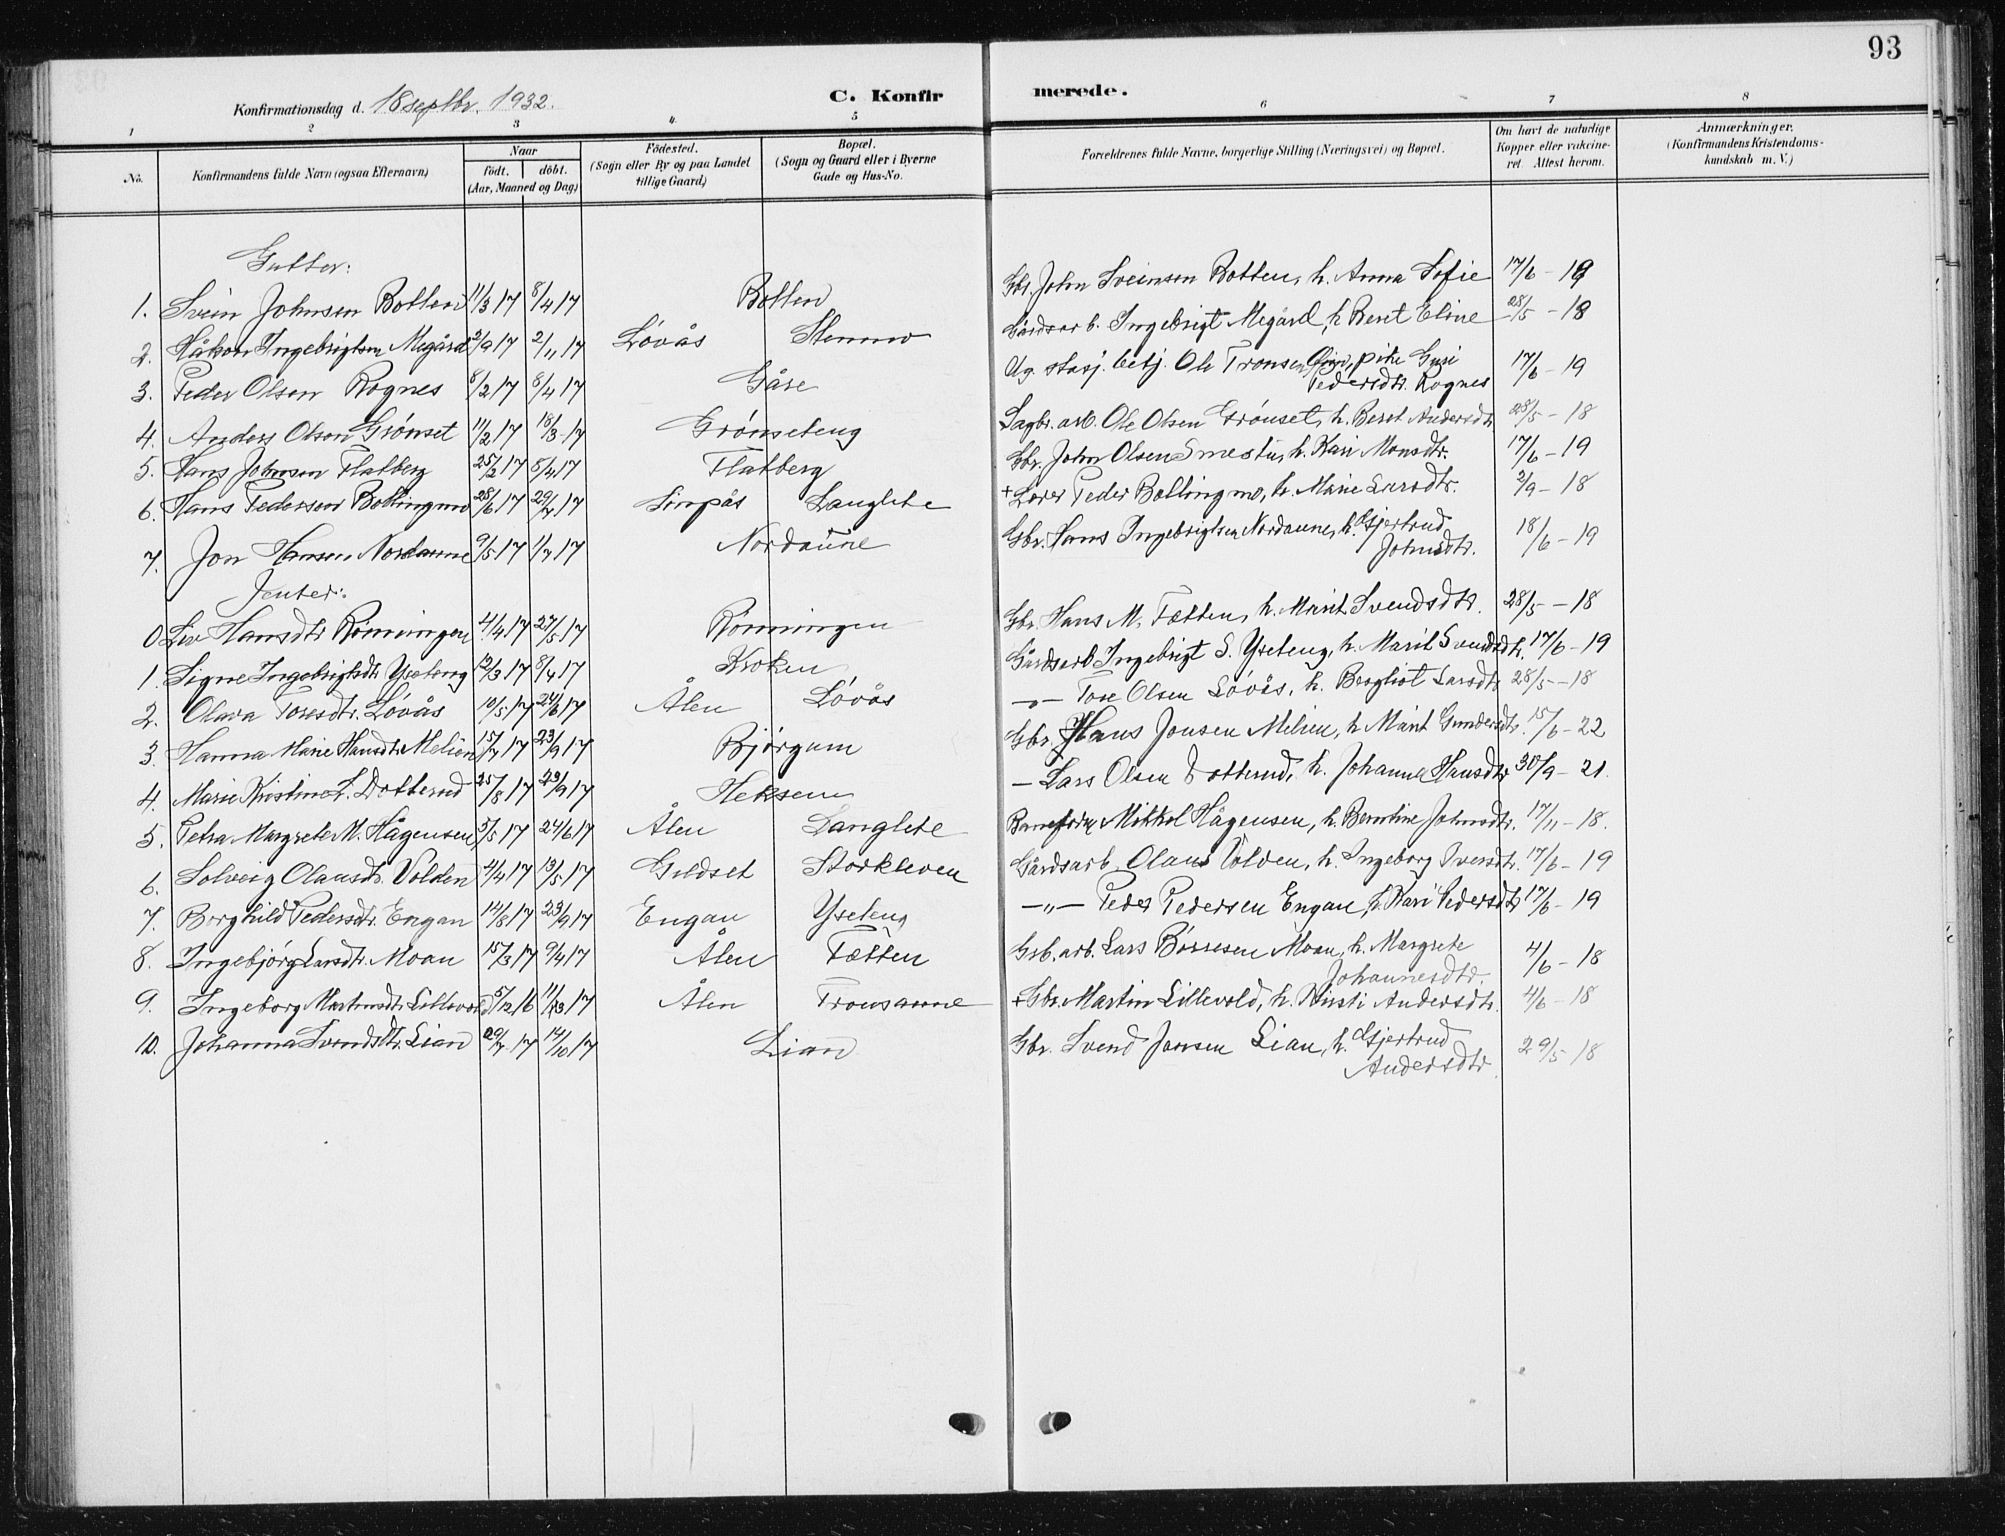 93
Konfirmationsdag d. 18 septbr. 1932. C. Konfirmerede.
1 2 3 4 5 6 7 8
No. Konfirmandens fulde Navn (ogsaa Efternavn) Naar födt. döbt. (Aar, Maaned og Dag) Födested. (Sogn eller By og paa Landet tillige Gaard) Bopæl. (Sogn og Gaard eller i Byerne Gade og Hus-No. Forældrenes fulde Navne, borgerlige Stilling (Næringsvei) og Bopæl. Om havt de naturlige Kopper eller vakcineret. Attest herom. Anmærkninger. (Konfirmandens Kristendomskundskab m. V.)
Gutter:
1. Svein Johnsen Botten 11/3 17 8/4 17 Botten Gbr. John Sveinsen Botten, h. Anna Sofie 17/6 - 19
2. Håkon Ingebrigtsen Megård 2/9 17 2/11 17 Løvås Stenmo Gårdsarb. Ingebrigt Megård, h. Beret Eline 28/5 - 18
3. Peder Olsen Rognes 8/2 17 8/4 17 Gåre Ug. stasj. betj. Ole Tronsen, pike Guri Pedersdtr. Rognes 17/6 - 19
4. Anders Olsen Grønset 11/2 17 18/3 17 Grønseteng Sagbr. arb. Ole Olsen Grønset, h. Beret Andersdtr. 28/5 - 18
5. Hans Johnsen Flatberg 25/2 17 8/4 17 Flatberg Gbr. John Olsen, h. Kari Monsdtr. 17/6 - 19
6. Hans Pedersen Bollingmo 28/6 17 29/7 17 Sinpås Langlete + Lærer Peder Bollingmo, h. Marie Larsdtr. 2/9 - 18
7. Jon Hansen Nordaune 9/5 17 1/7 17 Nordaune Gbr. Hans Ingebrigtsen Nordaune, h. Gjertrud Johnsdtr. 18/6 - 19
Jenter:
0 Liv Hansdtr. Rønningen 4/4 17 27/5 17 Rønningen Gbr. Hans M. Tætten, h. Marit Svendsdtr. 28/5 - 18
1. Signe Ingebrigtsdtr. Yseteng 12/3 17 8/4 17 Kroken Gårdsarb. Ingebrigt S. Yseteng, h. Marit Svendsdtr. 17/6 - 19
2. Olava Toresdtr. Løvås 10/5 17 24/6 17 Ålen Løvås -"- Tore Olsen Løvås, h. Bergliot Larsdtr. 28/5 - 18
3. Hanna Marie Hansdtr. Melien 15/7 17 23/9 17 Bjørgum Gbr. Hans Jonsen Melien, h. Marit Gundersdtr. 15/6 - 22
4. Marie Kristine L. Dotterud 25/8 17 23/9 17 Heksem - Lars Olsen Dotterud, h. Johanne Hansdtr. 30/9 - 21.
5. Petra Margrete M. Hågensen 5/5 17 24/6 17 Ålen Langlete Mikkel Hågensen, h. Berntine Johnsdtr. 17/11 - 18.
6. Solveig Olausdtr. Volden 4/4 17 13/5 17 Guldset Storkleven Gårdsarb. Olaus Volden, h. Ingeborg Iversdtr. 17/6 - 19
7. Borghild Pedersdtr. Engan 14/8 17 23/9 17 Engan Yseteng -"- Peder Pedersen Engan, h. Kari Pedersdtr. 17/6 - 19
8. Ingebjørg Larsdtr. Moan 15/3 17 9/4 17 Ålen Tætten Grb. arb. Lars Børresen Moan, h. Margrete Johannesdtr. 4/6 - 18
9. Ingeborg Martinsdtr. Lillevold 5/12 16 11/3 17 Ålen Tronsaune + Gbr. Martin Lillevold, h. Kirsti Andersdtr. 4/6 - 18
10. Johanna Svendsdtr. Lian 29/7 17 14/10 17 Lian Gbr. Svend Jonsen Lian, h. Gjertrud Andersdtr. 29/5 18